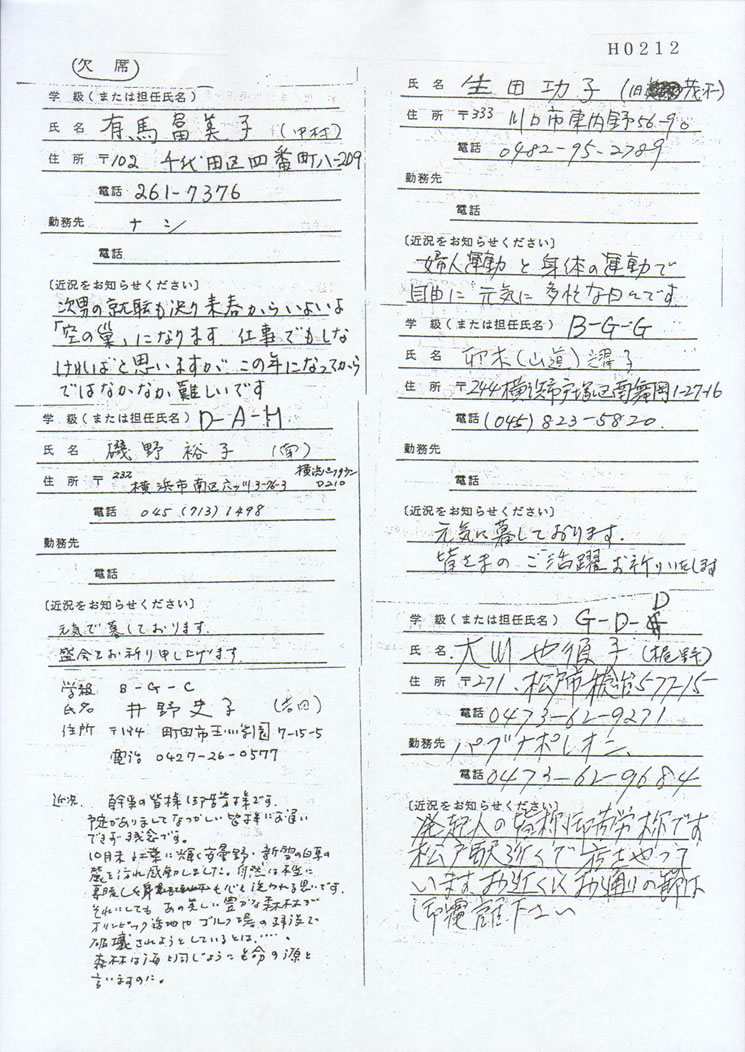 H0212
欠席
学級(または担任氏名)
氏名 有馬冨美子(中村)
住所 〒102 千代田区四番町八-209
電話 261-7376
勤務先 ナシ
電話
〔近況をお知らせください〕
次男の就職も決り来春からいよいよ
「空の巣」になります 仕事でもしな
ければと思いますが この年になってから
ではなかなか難しいです
学級(または担任氏名) D-A-H
氏名 磯野裕子
住所 〒232 横浜市南区六ッ川3-76-3
D210
電話 045(713)1498
勤務先
電話
〔近況をお知らせください〕
元気で暮しております.
盛会をお祈り申し上げます.
学級 B-G-C
氏名 井野史子(吉田)
住所 〒194 町田市玉川学園7-15-5
電話 0427-26-0577
近況. 幹事の皆様 御苦労様です.
予定がありましてなつかしい皆様にお逢い
できず残念です。
10月末 紅葉に輝く安曇野・新雪の白馬の
麓を訪れ感動しました. 自然は本当に
心も洗われる思いです.
それにしても あの美しい豊かな森林が
オリンピック 用地や ゴルフ場の建設で
破壊されようとしているとは.....
森林は海と同じように生命の源と
言いますのに.
氏名 生田功子(旧 茂木)
住所 〒333 川口市東内野56-90
電話 0482-95-2789
勤務先
電話
〔近況をお知らせください〕
婦人運動と身体の運動で
自由に元気に多忙な日々です
学級(または担任氏名) B-G-G
氏名 (山道)
住所 〒244 横浜市戸塚区南舞岡1-27-16
電話 (045)823-5820.
勤務先
電話
〔近況をお知らせください〕
元気に暮しております.
皆さまの ご活躍お祈りいたします
学級(または担任氏名) G-D-D
氏名 大川也須子(梶野)
住所 〒271. 松戸市 577-15
電話 0473-62-9271
勤務先 パブナポレオン
電話 0473-62-9684
〔近況をお知らせください〕
発起人の皆様御苦労様です
松戸駅近くで店をやって
います お近くにお通りの節は
御電話下さい